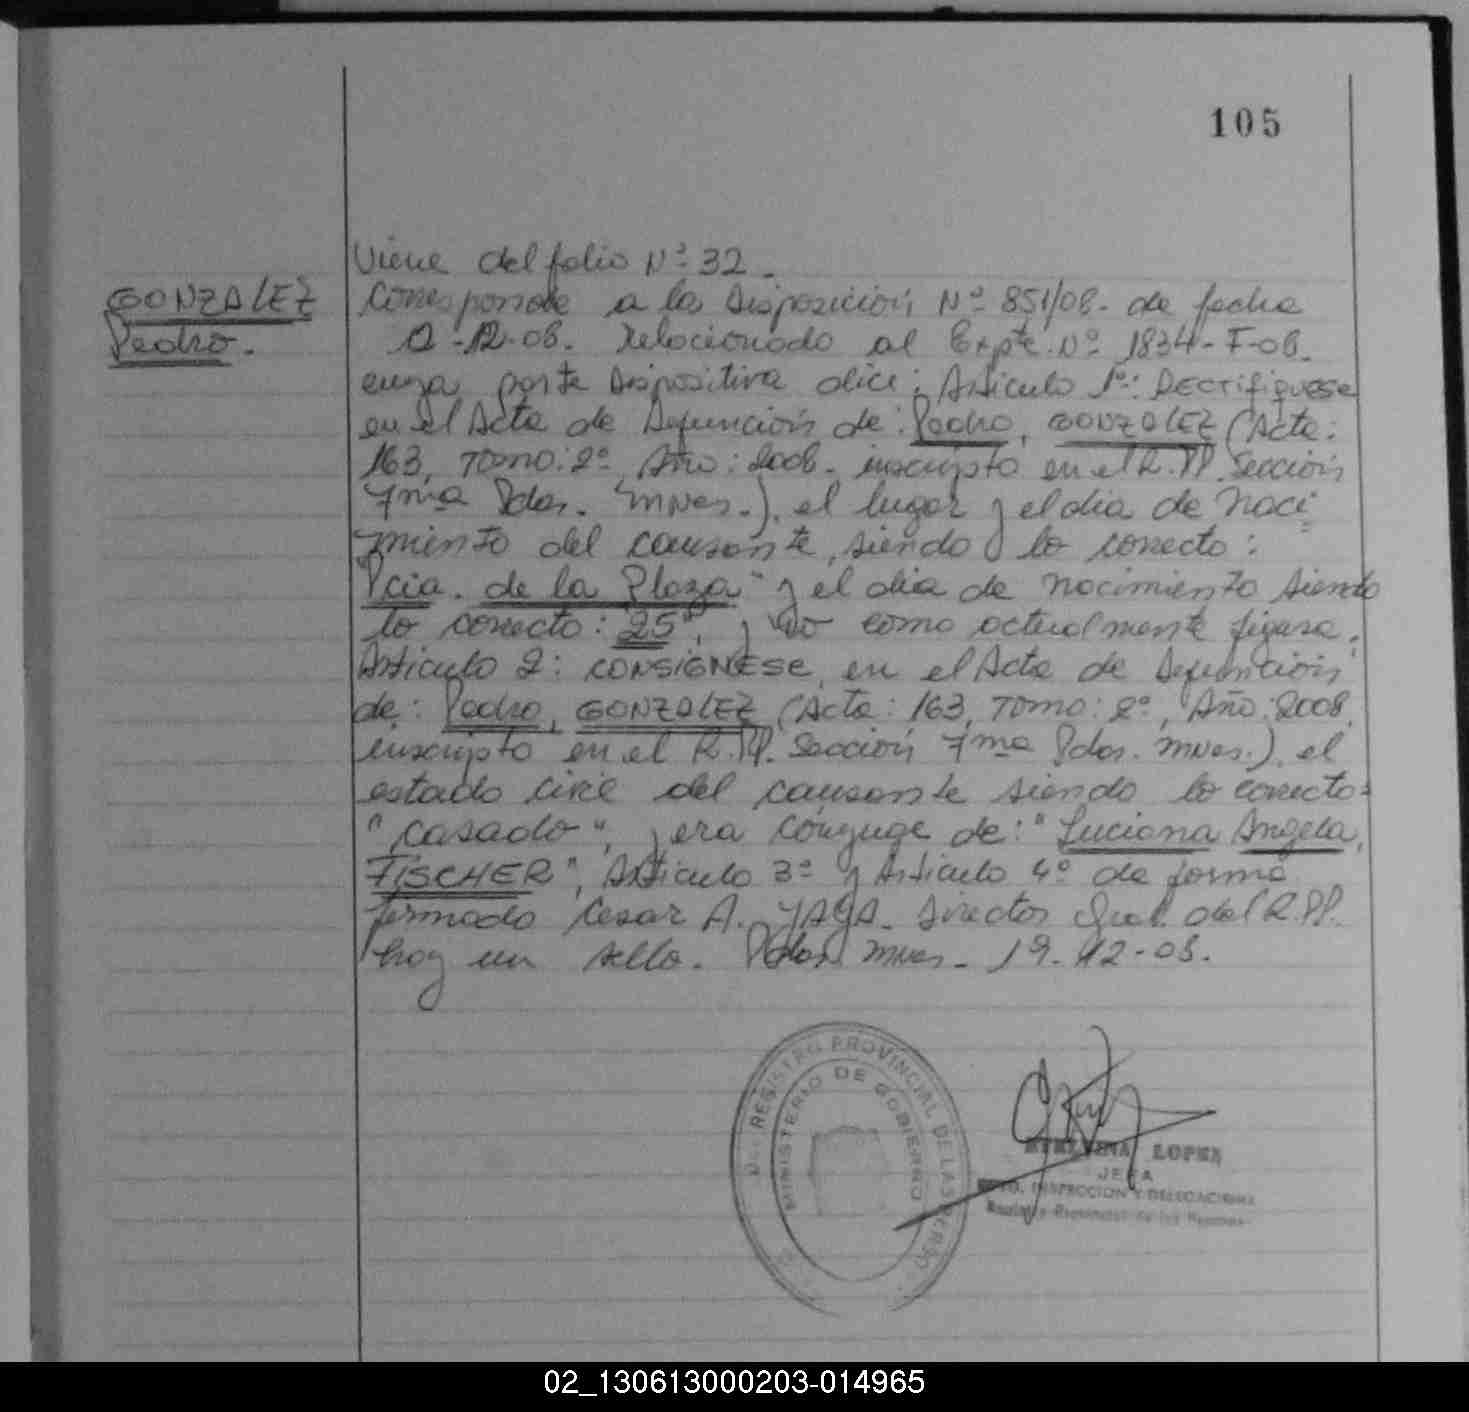 105
Viene del folio Nº 32.
GONZALEZ
Pedro.
Corresponde a la Disposición Nº 851/08. de fecha
-12-08. Relacionado al Expte. Nº 1834-F-08.
cuya parte dispositiva dice: Articulo 1º: RECTIFIQUESE
en el Acta de Defunción de: Pedro, GONZALEZ (Acta:
163, Tomo: 2º, Año: 2008. inscripto en el R.PP. Sección
7ma Pdas. Mnes.), el lugar y el dia de naci
miento del causante, siendo lo correcto:
"Pcia. de la Plaza" y el dia de nacimiento siendo
lo correcto: "25", y no como actualmente figura.
Articulo 2: CONSIGNESE, en el Acta de Defunción
de: Pedro, GONZALEZ (Acta: 163, Tomo: 2º, Año: 2008,
inscripto en el R.PP. Sección 7ma Pdas. Mnes.), el
estado civil del causante siendo lo correcto:
"casado", y era cónyuge de: "Luciana Angela,
FISCHER", Articulo 3º y Articulo 4º de forma
firmado Cesar A. Director Gral. del R.PP.
hay un sello. Pdas Mnes. 19-12-08.
REGISTRO PROVINCIAL DE LAS PERSO
MINISTERIO DE GOBIERNO
LOPEZ
JEFA
INSPECCION Y DELEGACIONES